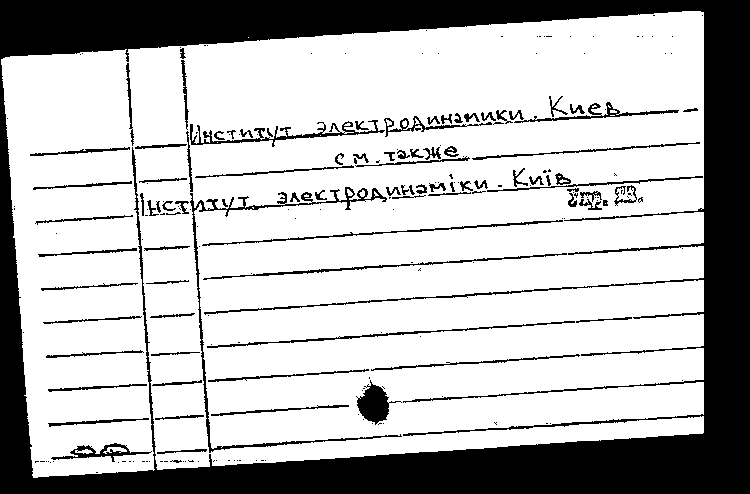 Институт электродинамики. Киев
см. также
Інститут электродинаміки. Київ
Укр. В.